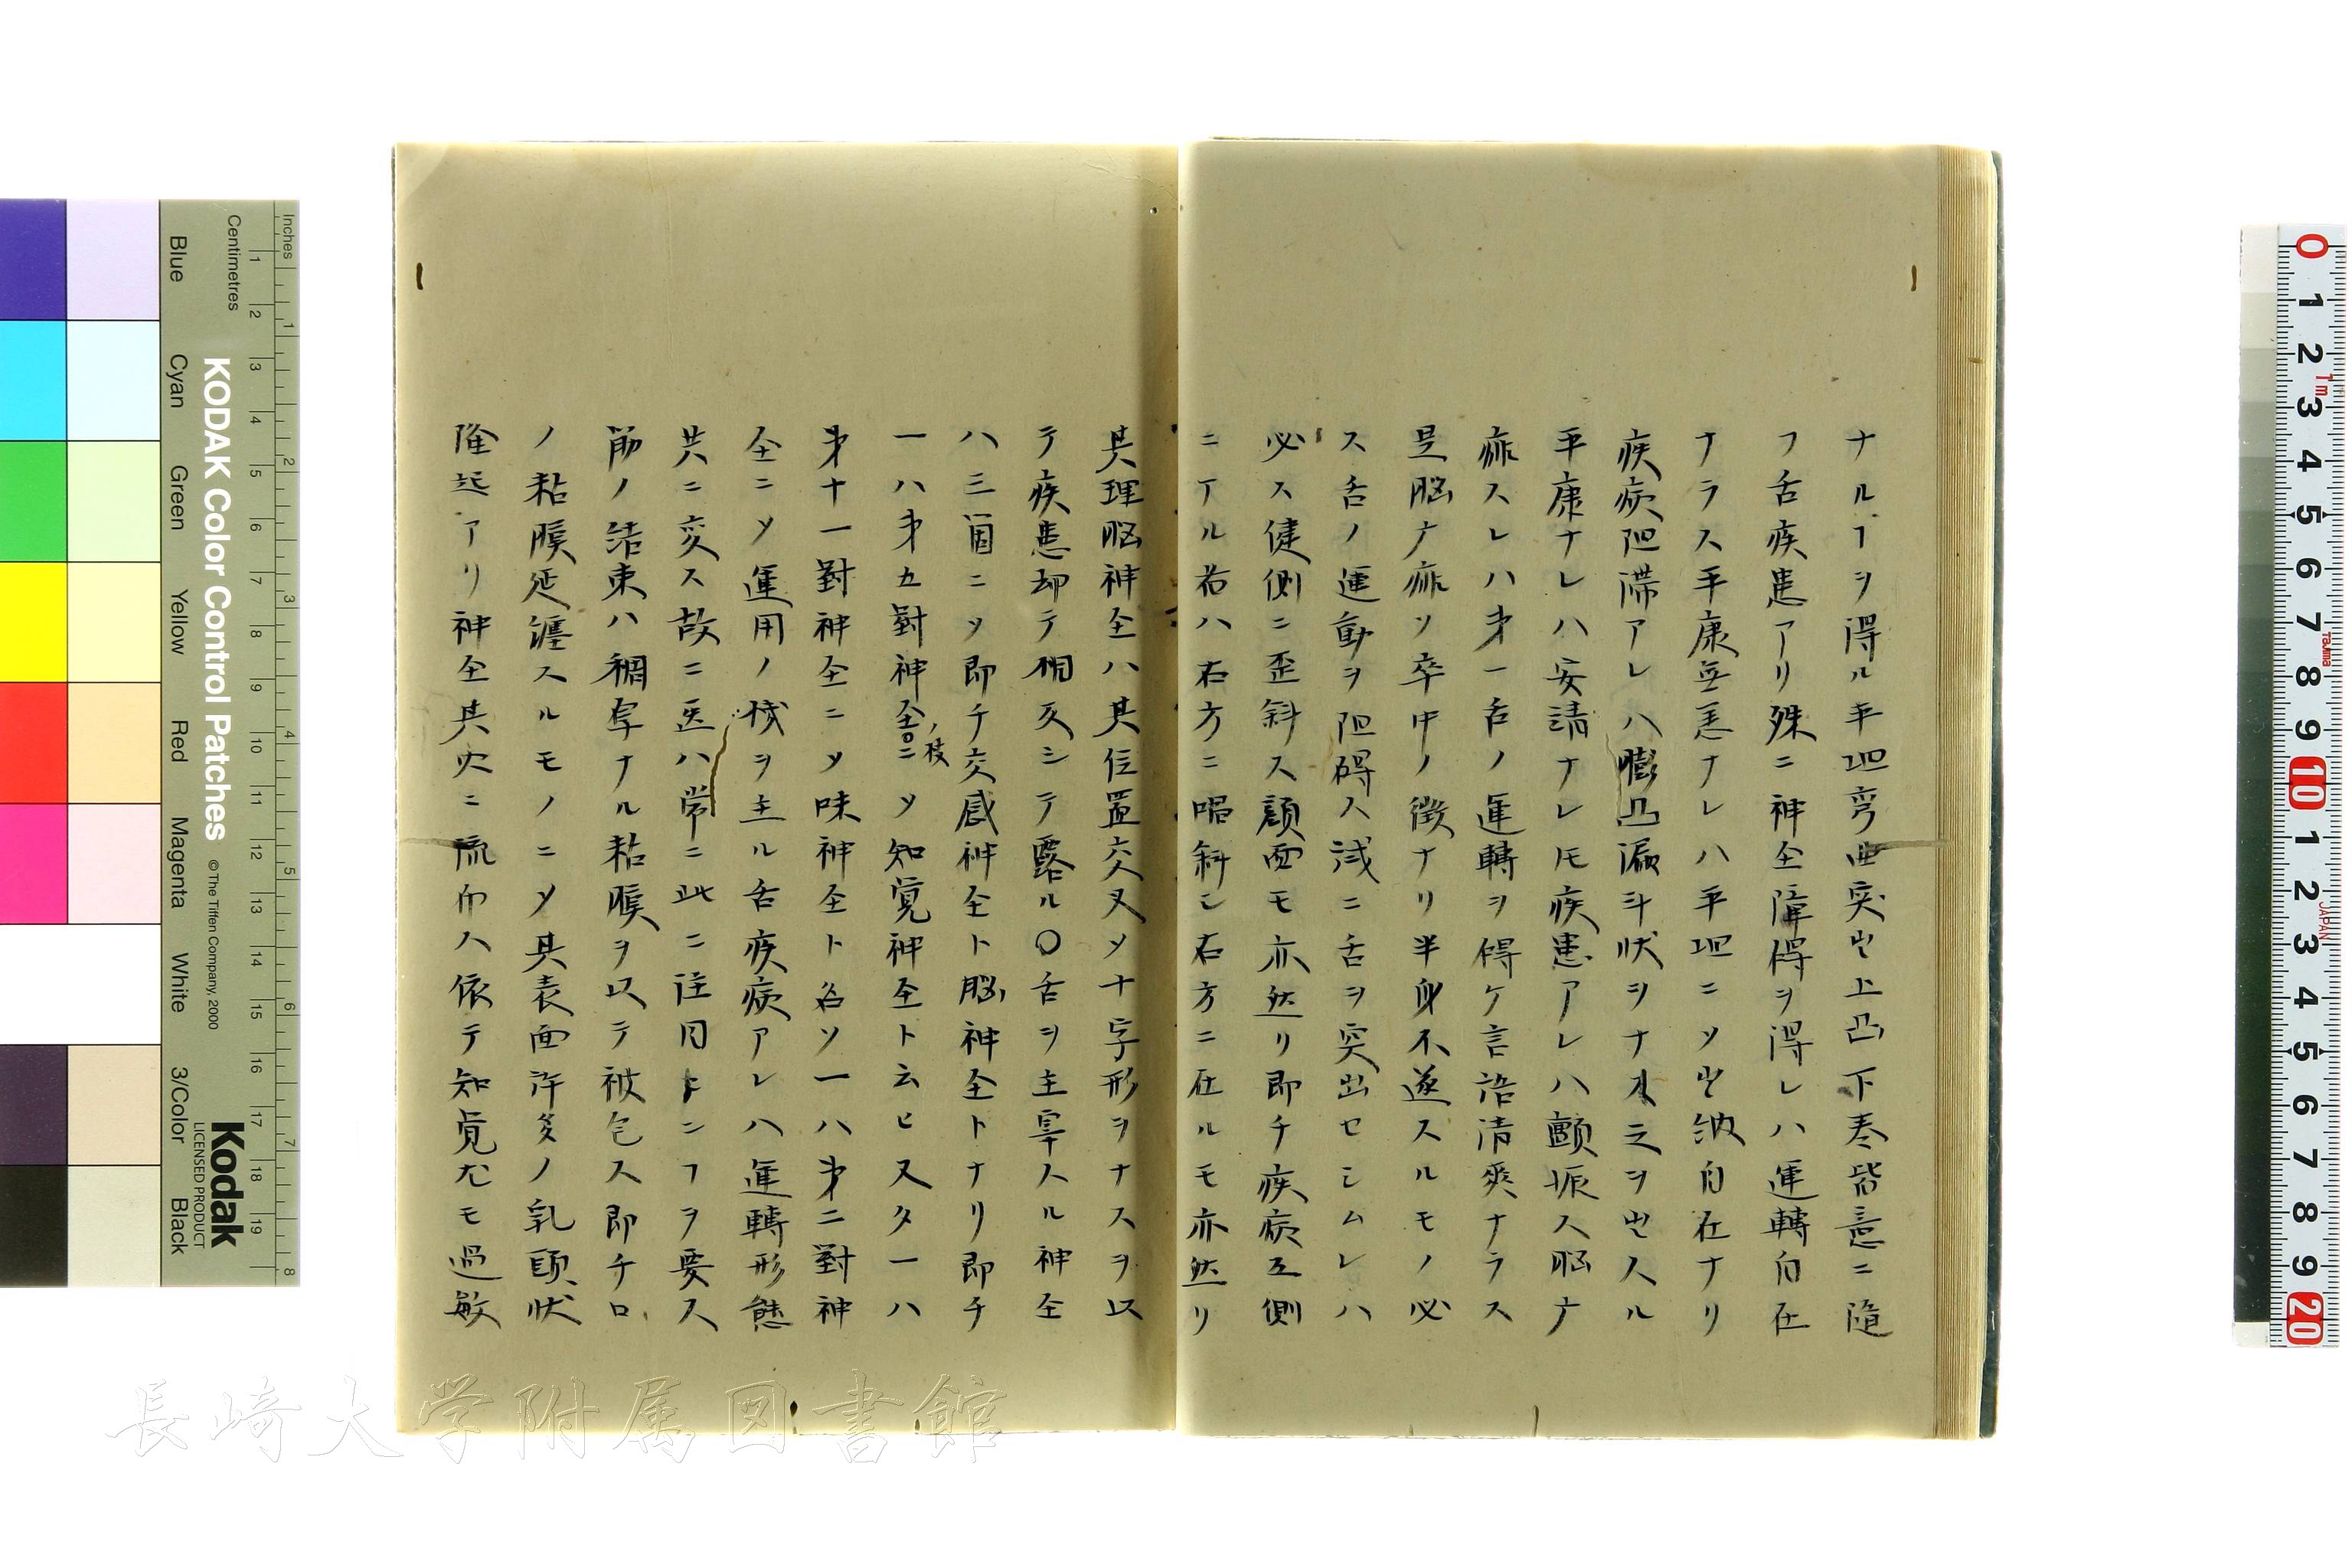 ナルヿヲ得ル平坦弯曲突出上凸下奏皆意ニ随
フ舌疾患アリ殊ニ神全障碍ヲ得レハ運轉自在
ナラス平康無恙ナレハ平坦ニソ出納自在ナリ
疾病阻滞アレハ膨凸漏斗状ヲナス之ヲ出スル
平康ナレハ安靖ナレ𪜈疾患アレハ顫振ス脳ノ
痲スレハ㐧一舌ノ運轉ヲ碍ケ言語清爽ナラス
是脳ノ痲ソ卒中ノ徴ナリ半身不遂スルモノ必
ス舌ノ運動ヲ阻碍ス試ニ舌ヲ突出セシムレハ
必ス健側ニ歪斜ス顔面モ亦然リ即チ疾病左側
ニアル者ハ右方ニ喎斜シ右方ニ在ルモ亦然リ
其理脳神全ハ其位置交叉ソ十字形ヲナスヲ以
テ疾患却テ相反シテ露ル〇舌ヲ主宰スル神全
ハ三箇ニソ即チ交感神全ト脳神全トナリ即チ
一ハ㐧五對神全ノ枝ニソ知覚神全ト云ヒ又タ一ハ
㐧十一對神全ニソ味神全ト名ソ一ハ㐧二對神
全ニソ運用ノ機ヲ主ル舌疾病アレハ運轉形態
共ニ変ス故ニ医ハ常ニ此ニ注目センヿヲ要ス
筋ノ結束ハ稠厚ナル粘膜ヲ以テ被包ス即チ口
ノ粘膜延纏スルモノニソ其表面許多ノ乳頭状
隆起アリ神全其尖ニ流布ス依テ知覚尤モ過敏
KODAK Color Control Patches
© The Tiffen Company, 2000
Kodak
LICENSED PRODUCT
Inches
Centimetres
Blue
Cyan
Green
Yellow
Red
Magenta
White
3/Color
Black
長崎大学附属図書館